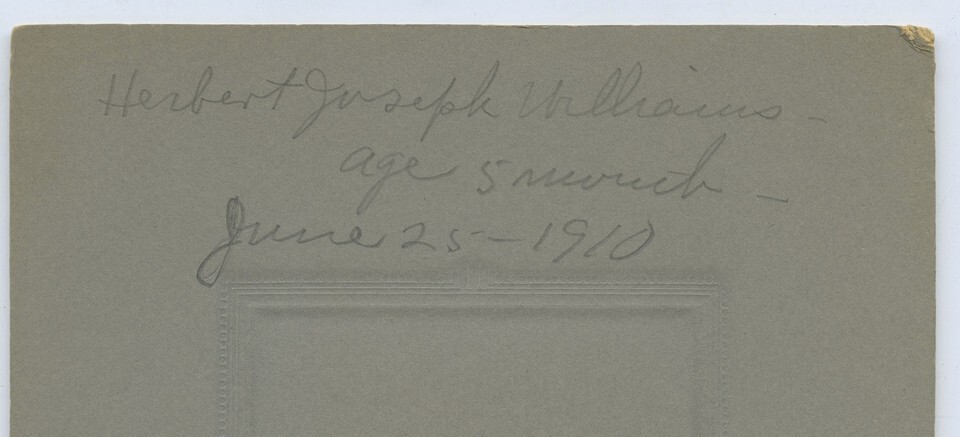 Herbert Joseph Williams -
age 5 month -
June 25 - 1910